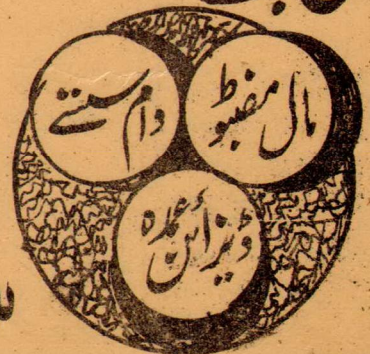 مال مضبوط
دام سستے
ڈیزائن عمدہ